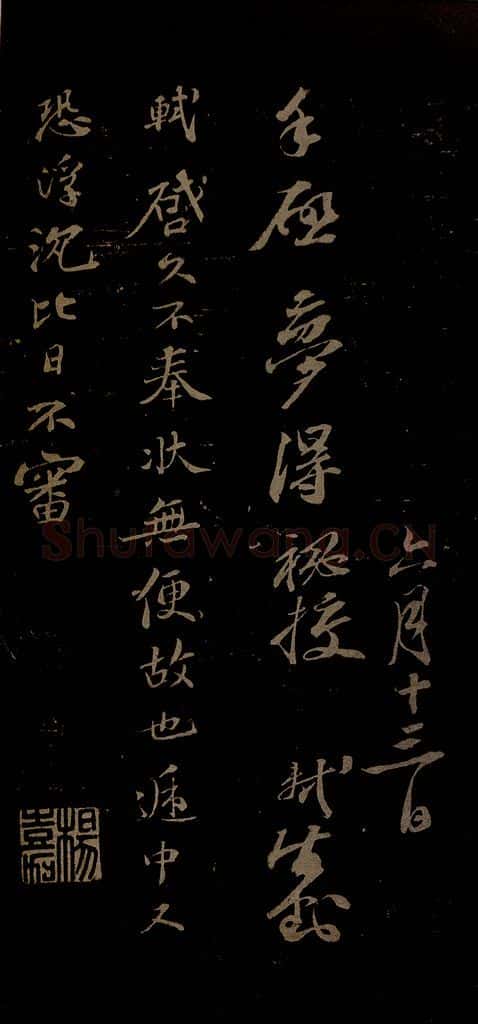 六月十三日
手啟夢得秘校 軾封
軾啓久不奉狀無便故也遞中又
恐浮沉比日不審
Shufawang.CN